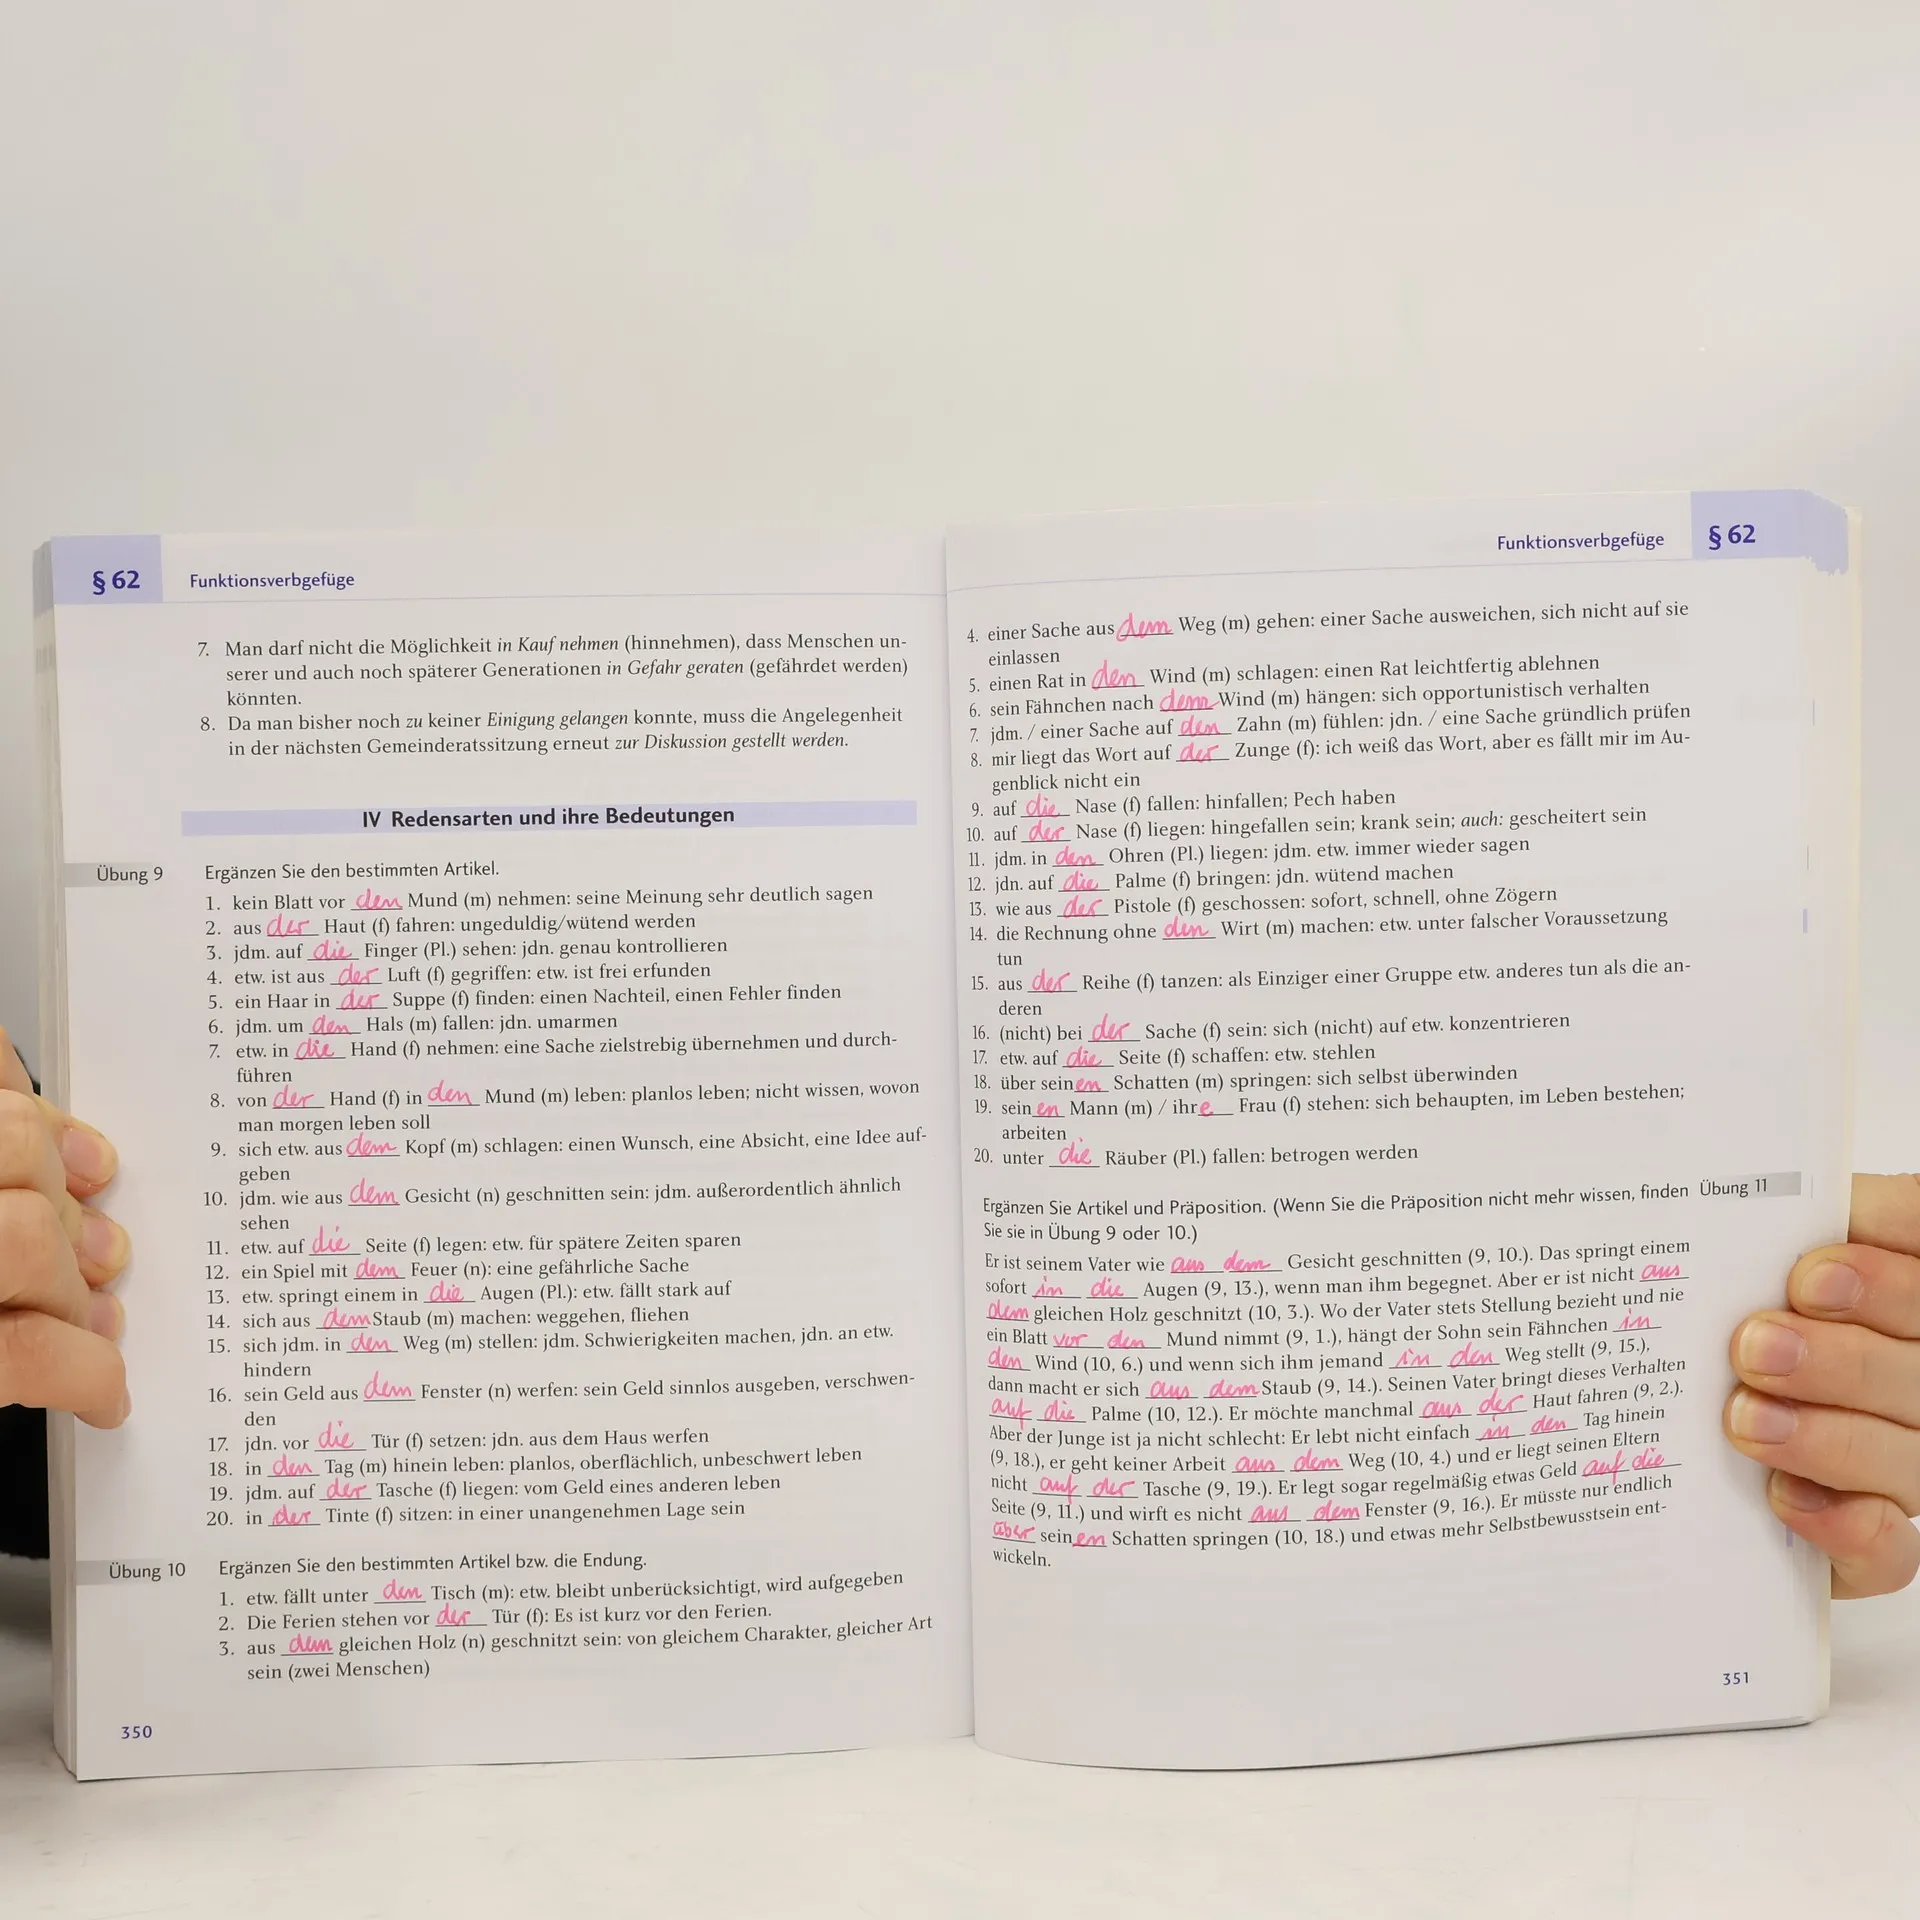 § 62 Funktionsverbgefüge
7. Man darf nicht die Möglichkeit in Kauf nehmen (hinnehmen), dass Menschen un-
serer und auch noch späterer Generationen in Gefahr geraten (gefährdet werden)
könnten.
8. Da man bisher noch zu keiner Einigung gelangen konnte, muss die Angelegenheit
in der nächsten Gemeinderatssitzung erneut zur Diskussion gestellt werden.
IV Redensarten und ihre Bedeutungen
Übung 9 Ergänzen Sie den bestimmten Artikel.
1. kein Blatt vor den Mund (m) nehmen: seine Meinung sehr deutlich sagen
2. aus der Haut (f) fahren: ungeduldig/wütend werden
3. jdm. auf die Finger (Pl.) sehen: jdn. genau kontrollieren
4. etw. ist aus der Luft (f) gegriffen: etw. ist frei erfunden
5. ein Haar in der Suppe (f) finden: einen Nachteil, einen Fehler finden
6. jdm. um den Hals (m) fallen: jdn. umarmen
7. etw. in die Hand (f) nehmen: eine Sache zielstrebig übernehmen und durch-
führen
8. von der Hand (f) in den Mund (m) leben: planlos leben; nicht wissen, wovon
man morgen leben soll
9. sich etw. aus dem Kopf (m) schlagen: einen Wunsch, eine Absicht, eine Idee auf-
geben
10. jdm. wie aus dem Gesicht (n) geschnitten sein: jdm. außerordentlich ähnlich
sehen
11. etw. auf die Seite (f) legen: etw. für spätere Zeiten sparen
12. ein Spiel mit dem Feuer (n): eine gefährliche Sache
13. etw. springt einem in die Augen (Pl.): etw. fällt stark auf
14. sich aus dem Staub (m) machen: weggehen, fliehen
15. sich jdm. in den Weg (m) stellen: jdm. Schwierigkeiten machen, jdn. an etw.
hindern
16. sein Geld aus dem Fenster (n) werfen: sein Geld sinnlos ausgeben, verschwen-
den
17. jdn. vor die Tür (f) setzen: jdn. aus dem Haus werfen
18. in den Tag (m) hinein leben: planlos, oberflächlich, unbeschwert leben
19. jdm. auf der Tasche (f) liegen: vom Geld eines anderen leben
20. in der Tinte (f) sitzen: in einer unangenehmen Lage sein
Übung 10 Ergänzen Sie den bestimmten Artikel bzw. die Endung.
1. etw. fällt unter den Tisch (m): etw. bleibt unberücksichtigt, wird aufgegeben
2. Die Ferien stehen vor der Tür (f): Es ist kurz vor den Ferien.
3. aus dem gleichen Holz (n) geschnitzt sein: von gleichem Charakter, gleicher Art
sein (zwei Menschen)
350
Funktionsverbgefüge § 62
4. einer Sache aus dem Weg (m) gehen: einer Sache ausweichen, sich nicht auf sie
einlassen
5. einen Rat in den Wind (m) schlagen: einen Rat leichtfertig ablehnen
6. sein Fähnchen nach dem Wind (m) hängen: sich opportunistisch verhalten
7. jdm. / einer Sache auf den Zahn (m) fühlen: jdn. / eine Sache gründlich prüfen
8. mir liegt das Wort auf der Zunge (f): ich weiß das Wort, aber es fällt mir im Au-
genblick nicht ein
9. auf die Nase (f) fallen: hinfallen; Pech haben
10. auf der Nase (f) liegen: hingefallen sein; krank sein; auch: gescheitert sein
11. jdm. in den Ohren (Pl.) liegen: jdm. etw. immer wieder sagen
12. jdn. auf die Palme (f) bringen: jdn. wütend machen
13. wie aus der Pistole (f) geschossen: sofort, schnell, ohne Zögern
14. die Rechnung ohne den Wirt (m) machen: etw. unter falscher Voraussetzung
tun
15. aus der Reihe (f) tanzen: als Einziger einer Gruppe etw. anderes tun als die an-
deren
16. (nicht) bei der Sache (f) sein: sich (nicht) auf etw. konzentrieren
17. etw. auf die Seite (f) schaffen: etw. stehlen
18. über seinen Schatten (m) springen: sich selbst überwinden
19. seinen Mann (m) / ihre Frau (f) stehen: sich behaupten, im Leben bestehen;
arbeiten
20. unter die Räuber (Pl.) fallen: betrogen werden
Ergänzen Sie Artikel und Präposition. (Wenn Sie die Präposition nicht mehr wissen, finden Übung 11
Sie sie in Übung 9 oder 10.)
Er ist seinem Vater wie aus dem Gesicht geschnitten (9, 10.). Das springt einem
sofort in die Augen (9, 13.), wenn man ihm begegnet. Aber er ist nicht aus
dem gleichen Holz geschnitzt (10, 3.). Wo der Vater stets Stellung bezieht und nie
ein Blatt vor den Mund nimmt (9, 1.), hängt der Sohn sein Fähnchen in
den Wind (10, 6.) und wenn sich ihm jemand in den Weg stellt (9, 15.),
dann macht er sich aus dem Staub (9, 14.). Seinen Vater bringt dieses Verhalten
auf die Palme (10, 12.). Er möchte manchmal aus der Haut fahren (9, 2.).
Aber der Junge ist ja nicht schlecht: Er lebt nicht einfach in den Tag hinein
(9, 18.), er geht keiner Arbeit aus dem Weg (10, 4.) und er liegt seinen Eltern
nicht auf der Tasche (9, 19.). Er legt sogar regelmäßig etwas Geld auf die
Seite (9, 11.) und wirft es nicht aus dem Fenster (9, 16.). Er müsste nur endlich
über seinen Schatten springen (10, 18.) und etwas mehr Selbstbewusstsein ent-
wickeln.
351